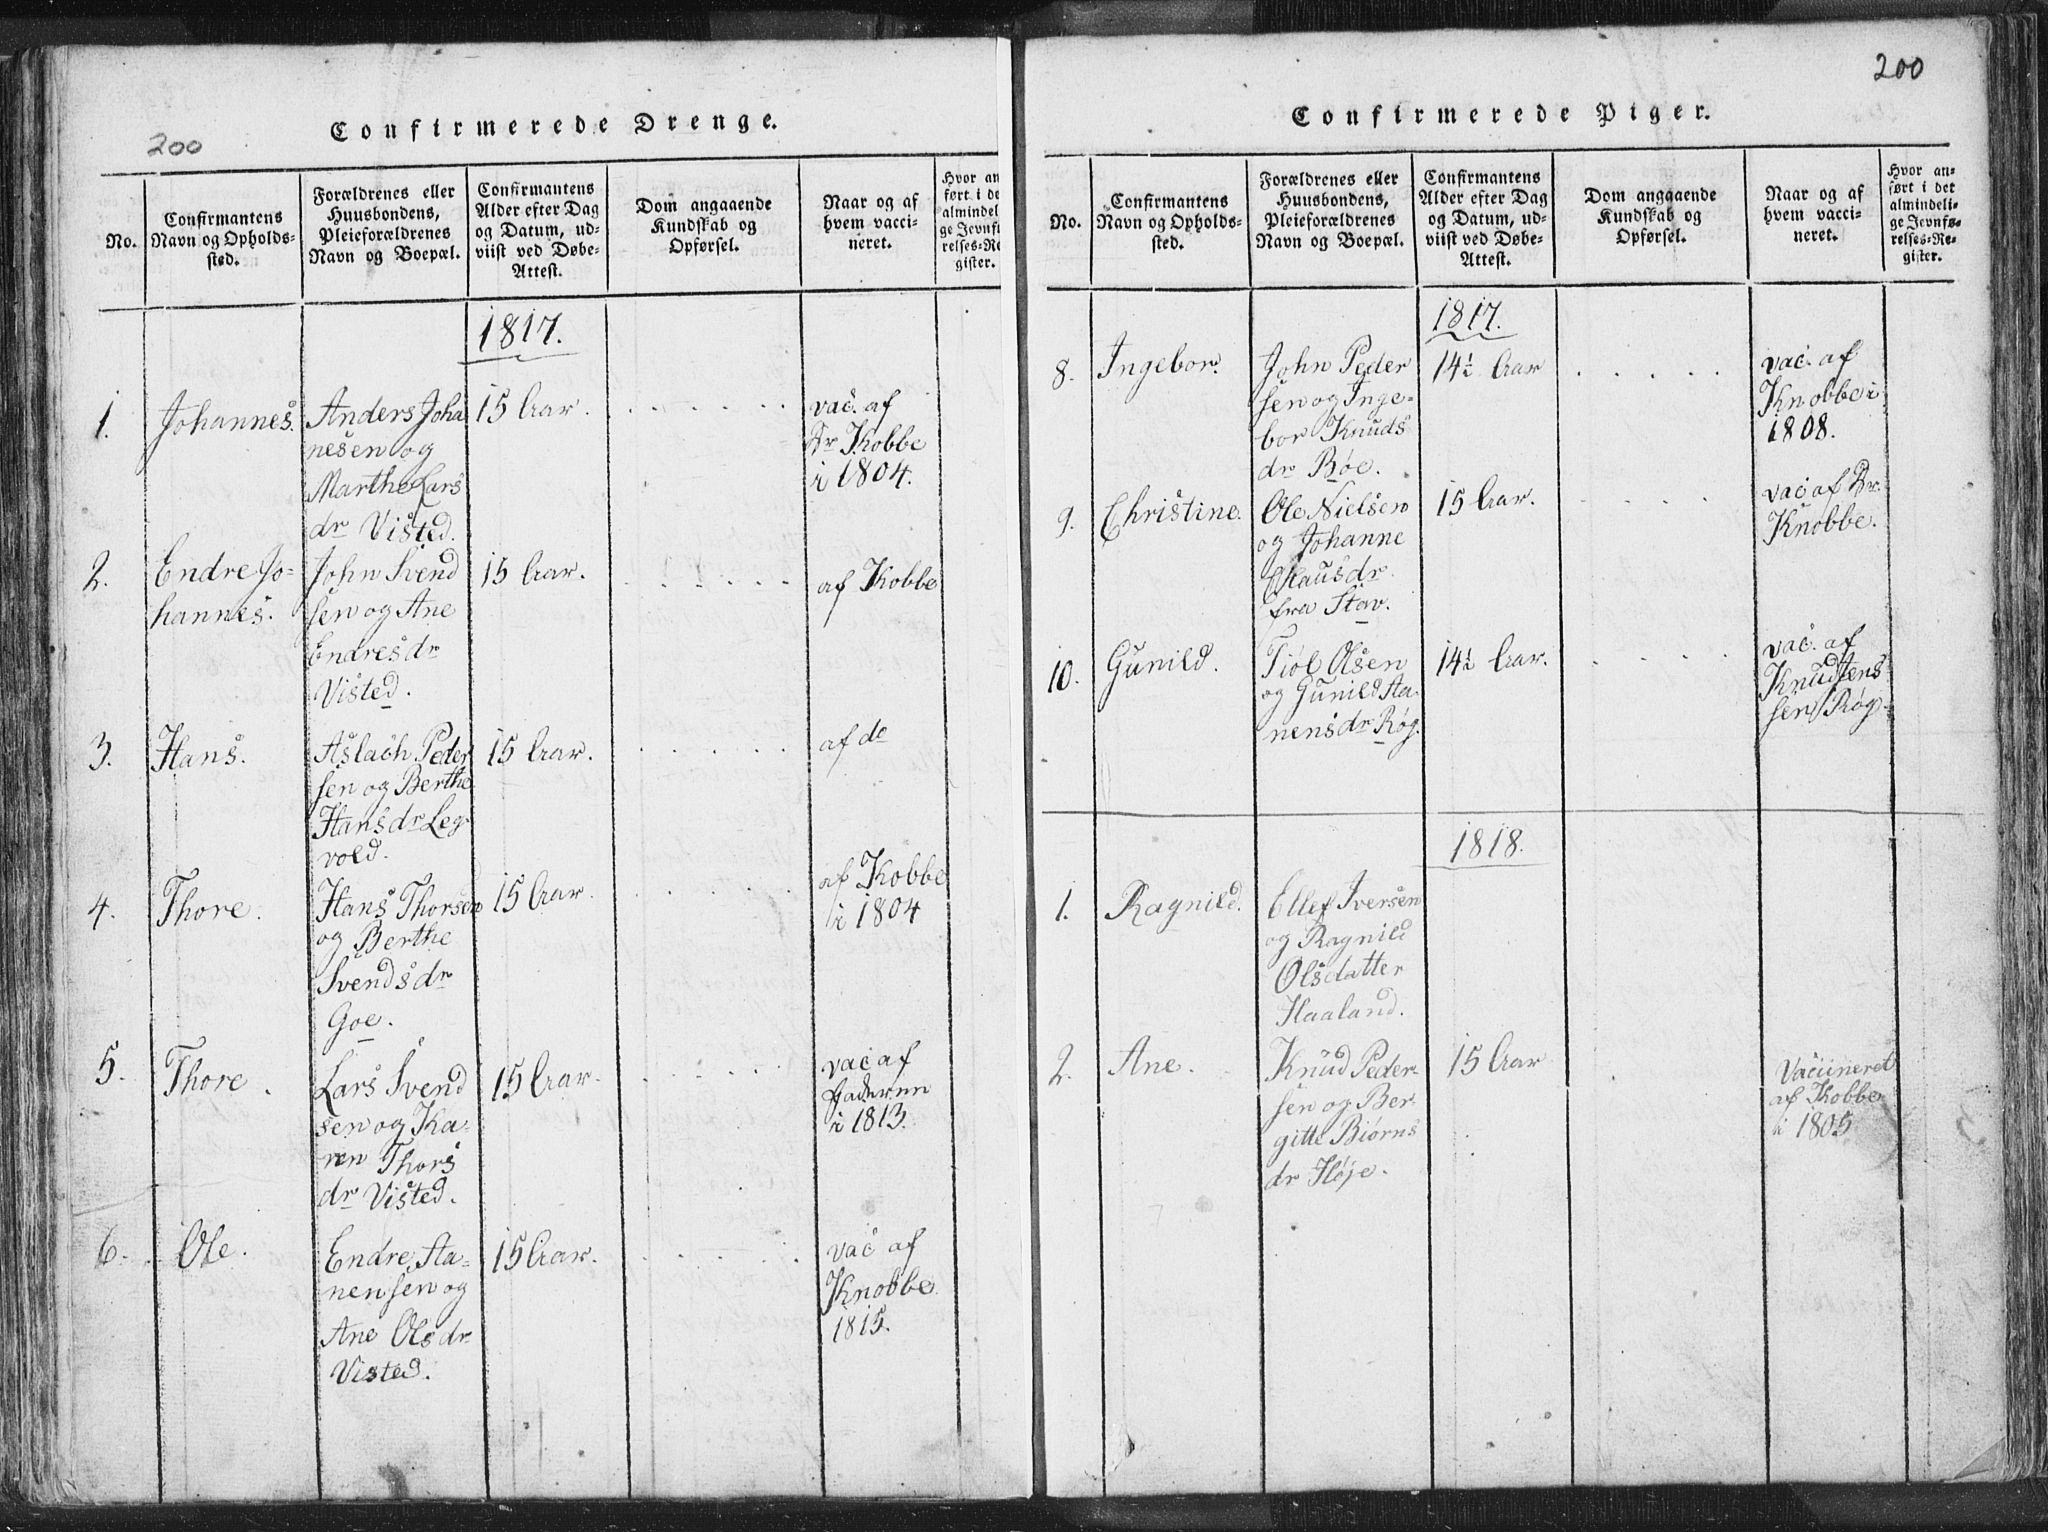 200
Confirmerede Drenge.
No.
Confirmantens
Navn og Opholds-
sted.
Forældrenes eller
Huusbondens,
Pleieforældrenes
Navn og Boepæl.
Confirmantens
Alder efter Dag
og Datum, ud-
viist ved Døbe-
Attest.
Dom angaaende
Kundskab og
Opførsel.
Naar og af
hvem vacci-
neret.
Hvor an
ført i de
almindel
ge Jevnf
relses-Re
gister.
1817.
1.
Johannes.
Anders Joha
nesen og
Marthe Lars
dr Visted.
15 Aar.
vac. af
Dr Kobbe
i 1804.
2.
Endre Jo-
hannes.
John Svend
sen og Ane
Endresdr
Visted.
15 Aar.
af Kobbe
3.
Hans.
Aslach Peder
sen og Berthe
Hansdr Leg-
vold.
15 Aar.
af do
4.
Thore.
Hans Thorsen
og Berthe
Svendsdr
Goe.
15 Aar.
af Kobbe
i 1804
5.
Thore.
Lars Svend
sen og Ka-
ren Thors
dr Visted.
15 Aar.
vac af
i 1813.
6.
Ole.
Endre Sta-
nensen og
Ane Olsdr
Visted.
15 Aar.
vac af
Knobbe
1815.
200
Confirmerede Piger.
No.
Confirmantens
Navn og Opholds-
sted.
Forældrenes eller
Huusbondens,
Pleieforældrenes
Navn og Boepæl.
Confirmantens
Alder efter Dag
og Datum, ud-
viist ved Døbe-
Attest.
Dom angaaende
Kundskab og
Opførsel.
Naar og af
hvem vacci-
neret.
Hvor an-
ført i det
almindeli-
ge Jevnfø-
relses-Re-
gister.
1817.
8.
Ingebor.
John Peder
sen og Inge-
bor Knuds
dr Røe.
14½ Aar
vac. af
Knobbe i
1808.
9.
Christine.
Ole Nielsen
og Johanne
Clausdr
fra Stav.
15 Aar.
vac af Dr.
Knobbe.
10.
Gunild.
Tiøl Olsen
og Gunild Sta-
nensdr Røg.
14½ Aar.
vac. af
Knud Jens
sen Røg.
1818.
1.
Ragnild.
Ellef Iversen
og Ragnild
Olsdatter
Haaland.
2.
Ane.
Knud Peder-
sen og Ber-
gitte Biørns
dr Høje.
15 Aar
Vacineret
af Kobbe
i 1805